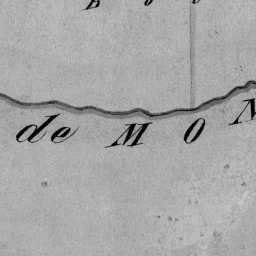 de MON